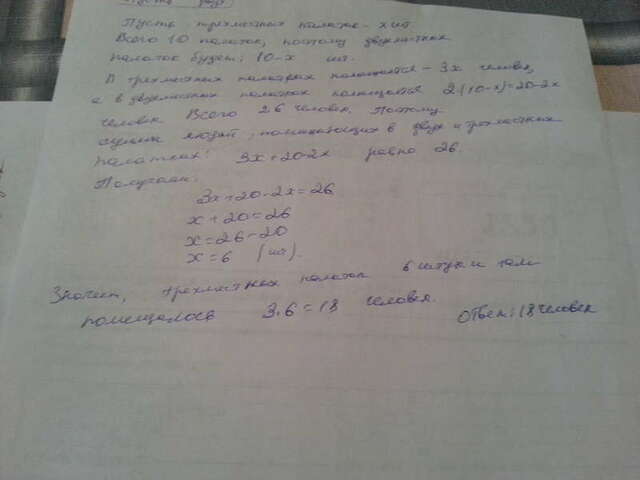 Пусть трехместных палаток - х шт.
Всего 10 палаток, поэтому двухместных
палаток будет: 10-х шт.
В трехместных палатках помещается - 3х человек,
а в двухместных палатках помещается 2(10-х)=20-2х
человек. Всего 26 человек. Поэтому
людей, помещающихся в двух и трехместных
палатках: 3х+20-2х равно 26.
Получаем:
3х+20-2х=26
х+20=26
х=26-20
х=6 (шт).
Значит, трехместных палаток 6 штук и там
помещалось 3·6=18 человек.
Ответ: 18 человек